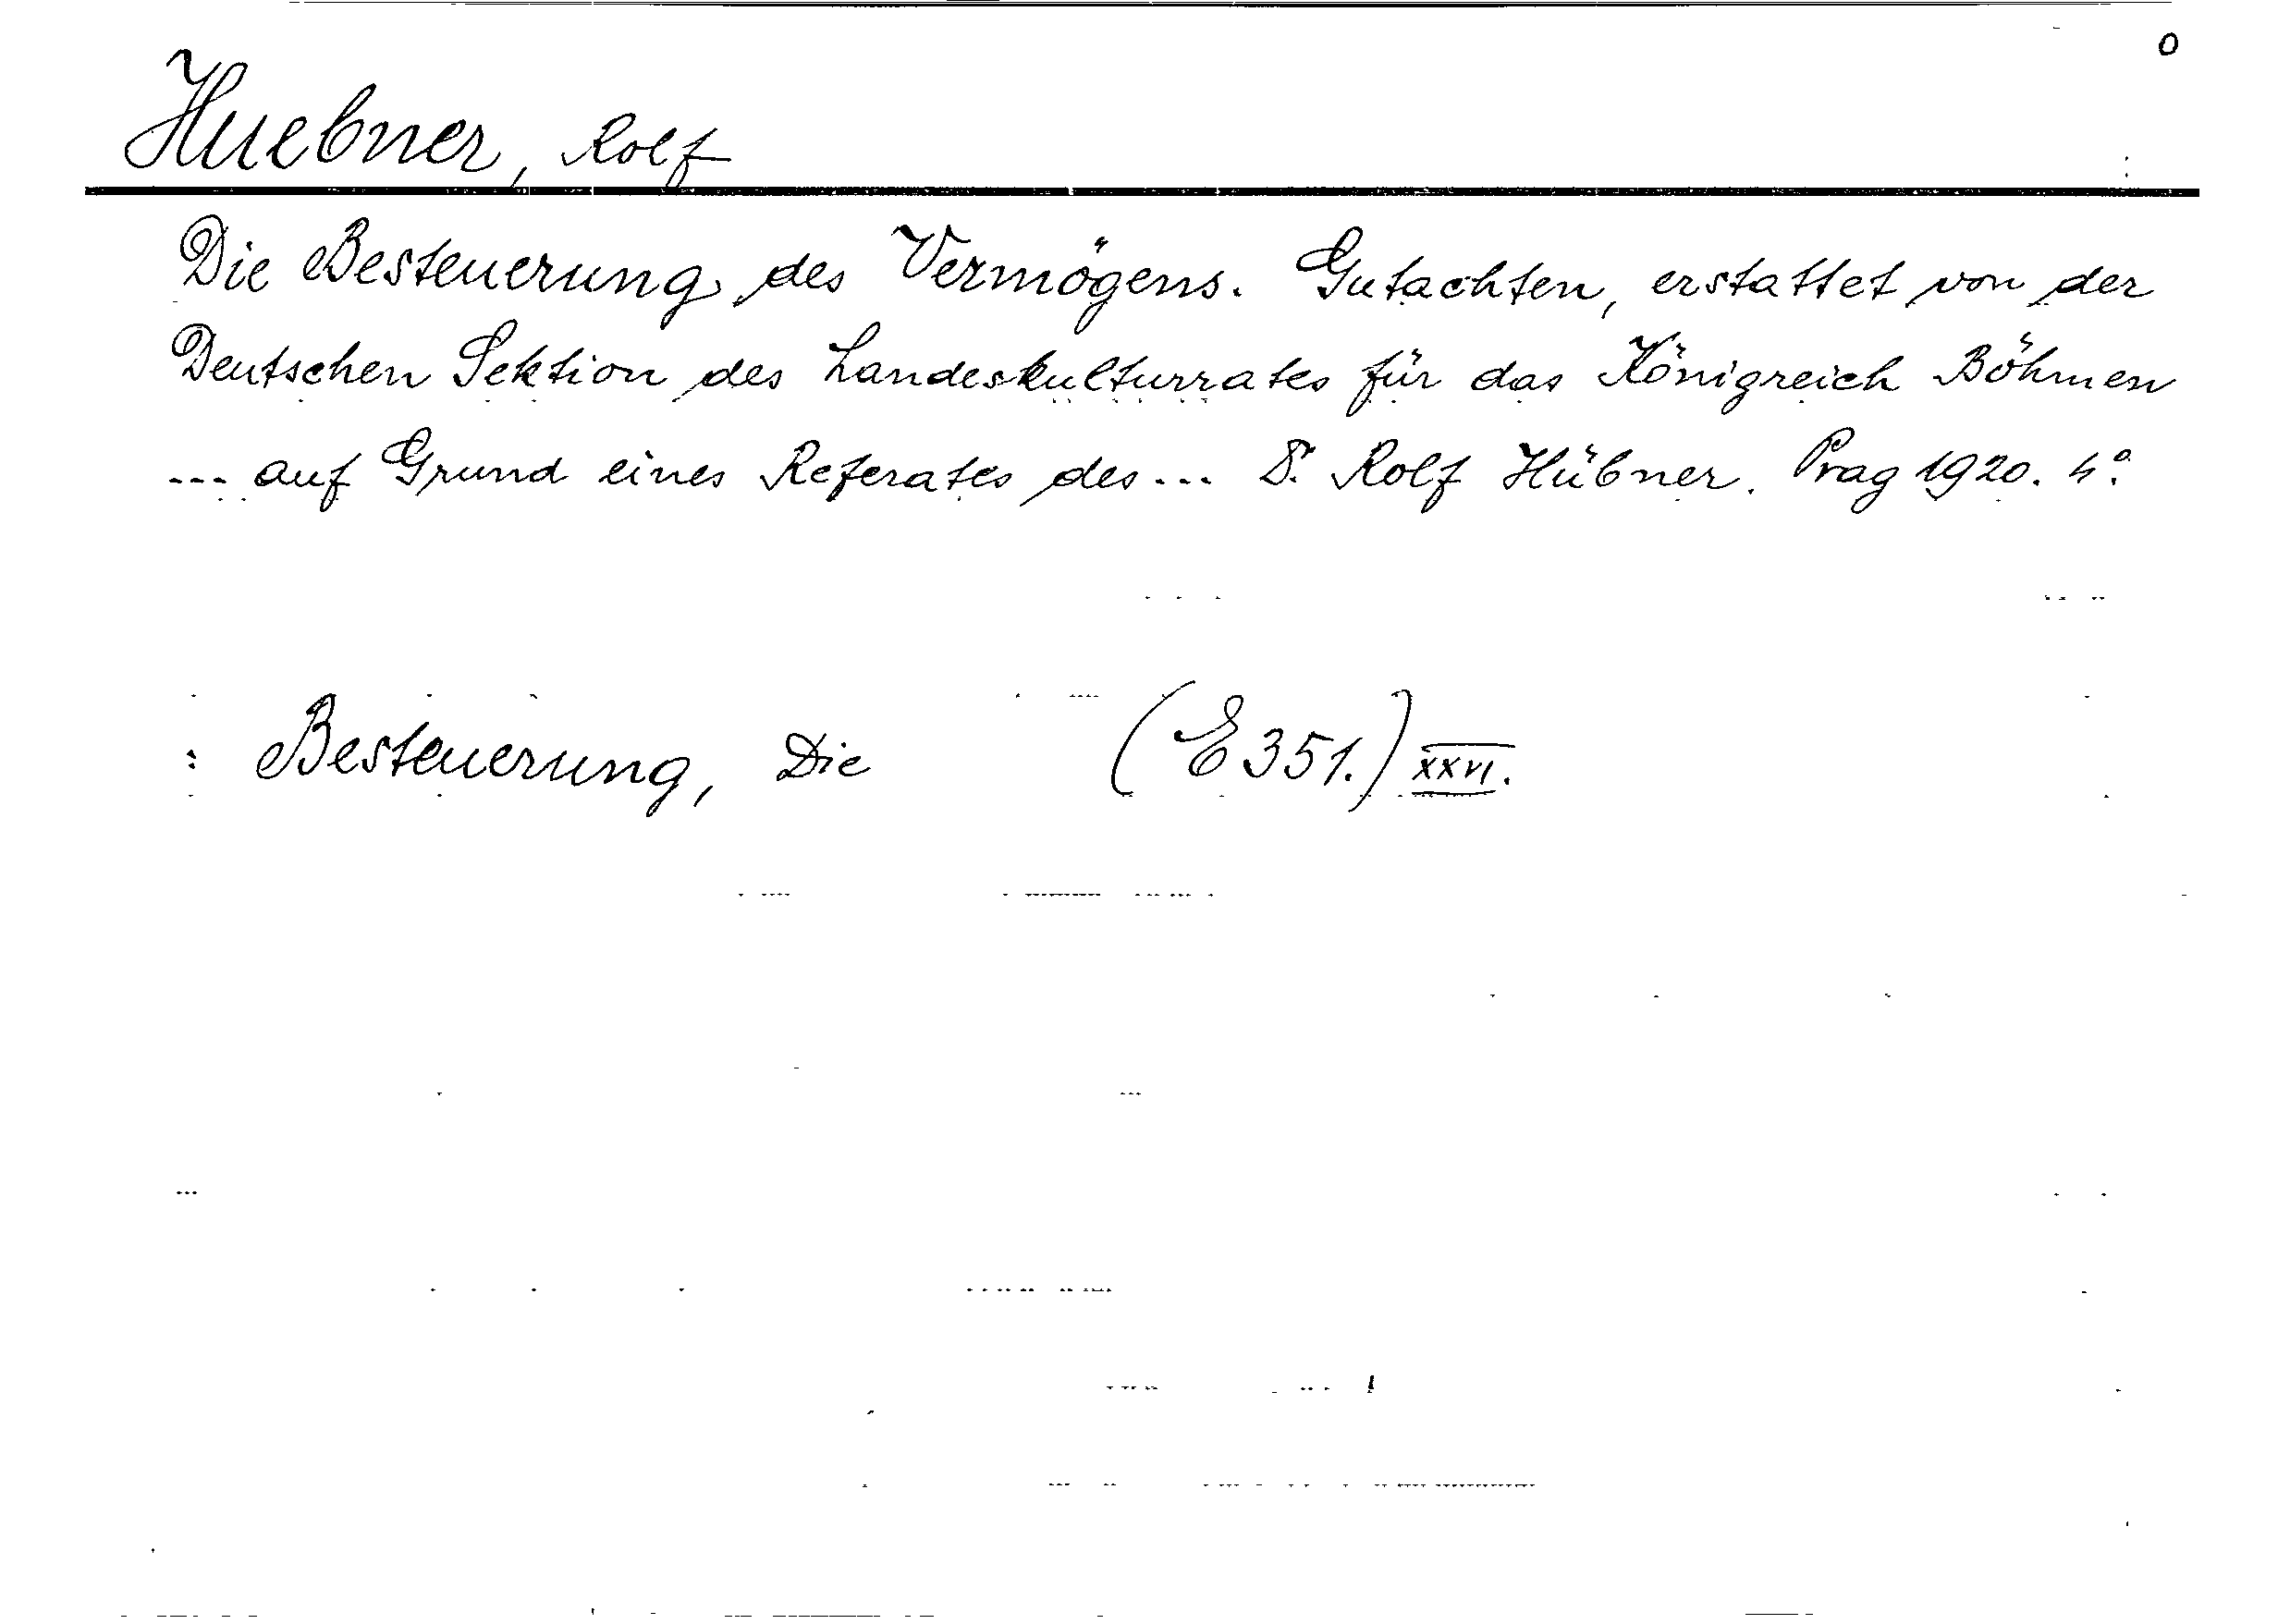 o
Huebner, Rolf
Die Besteuerung des Vermögens. Gutachten, erstattet von der
Deutschen Sektion des Landeskulturrates für das Königreich Böhmen
... auf Grund eines Referates des ... Dr. Rolf Hübner. Prag 1920. 4°.
: Besteuerung, Die (E 351.) XXVI.